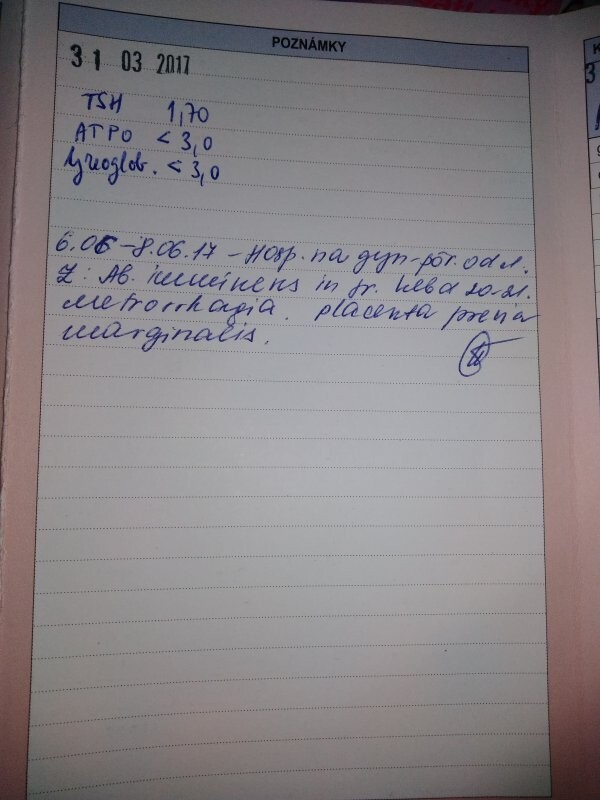 POZNÁMKY
31 03 2017
TSH 1,70
ATPO < 3,0
tyreoglob. < 3,0
6.06 - 8.06.17 - Hosp. na gyn-pôr. odd.
Z: Ab. imminens in gr. hebd 20-21.
metrorrhagia. placenta previa
marginalis.
K
3